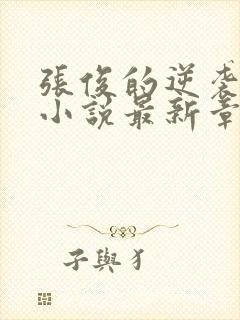 張俊的逆袭
小說最新章
子與犭